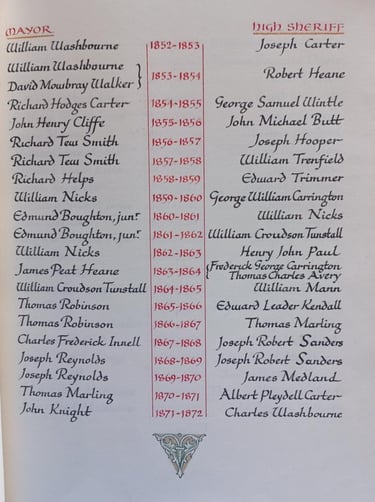 MAYOR HIGH SHERIFF
William Washbourne 1852-1853 Joseph Carter
William Washbourne
David Mowbray Walker 1853-1854 Robert Heane
Richard Hodges Carter 1854-1855 George Samuel Wintle
John Henry Cliffe 1855-1856 John Michael Butt
Richard Tew Smith 1856-1857 Joseph Hooper
Richard Tew Smith 1857-1858 William Trenfield
Richard Helps 1858-1859 Edward Trimmer
William Nicks 1859-1860 George William Carrington
Edmund Boughton, junr 1860-1861 William Nicks
Edmund Boughton, junr 1861-1862 William Croudson Tunstall
William Nicks 1862-1863 Henry John Paul
James Peat Heane 1863-1864 Frederick George Carrington
Thomas Charles Avery
William Croudson Tunstall 1864-1865 William Mann
Thomas Robinson 1865-1866 Edward Leader Kendall
Thomas Robinson 1866-1867 Thomas Marling
Charles Frederick Innell 1867-1868 Joseph Robert Sanders
Joseph Reynolds 1868-1869 Joseph Robert Sanders
Joseph Reynolds 1869-1870 James Medland
Thomas Marling 1870-1871 Albert Pleydell Carter
John Knight 1871-1872 Charles Washbourne